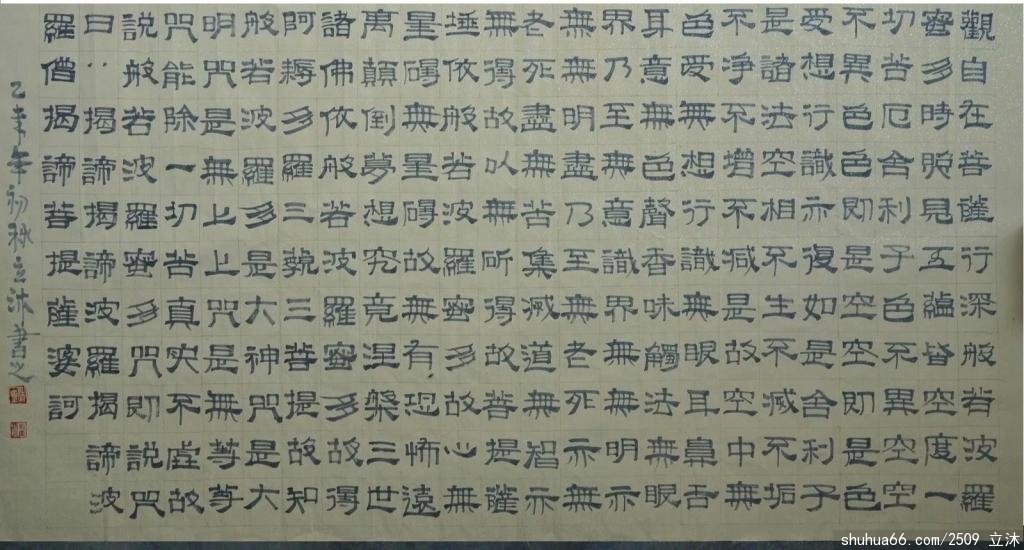 觀自在菩薩行深般若波羅
蜜多時照見五蘊皆空度一
切苦厄舍利子色不異空空
不異色色即是空空即是色
受想行識亦復如是舍利子
是諸法空相不生不滅不垢
不淨不增不減是故空中無
色受無想行識無眼耳鼻舌
耳意無色聲香味觸法無眼
界乃至無意識界無無明亦
無無明盡乃至無老死亦無
老死盡無苦集滅道無智亦
無得故以無所得故菩提薩
埵依般若波羅蜜多故心無
罣碍無罣碍故無有恐怖遠
离顛倒夢想究竟涅槃三世
諸佛依般若波羅蜜多故得
阿耨多羅三藐三菩提故知
般若波羅多是大神咒是大
明咒是無上上咒是無等等
咒能除一切苦真实不虛故
說般若波羅蜜多咒即說咒
曰：揭諦揭諦波羅揭諦波
羅僧揭諦菩提薩婆訶
乙未年初秋立沐書之
shuhua66.com/2509 立沐